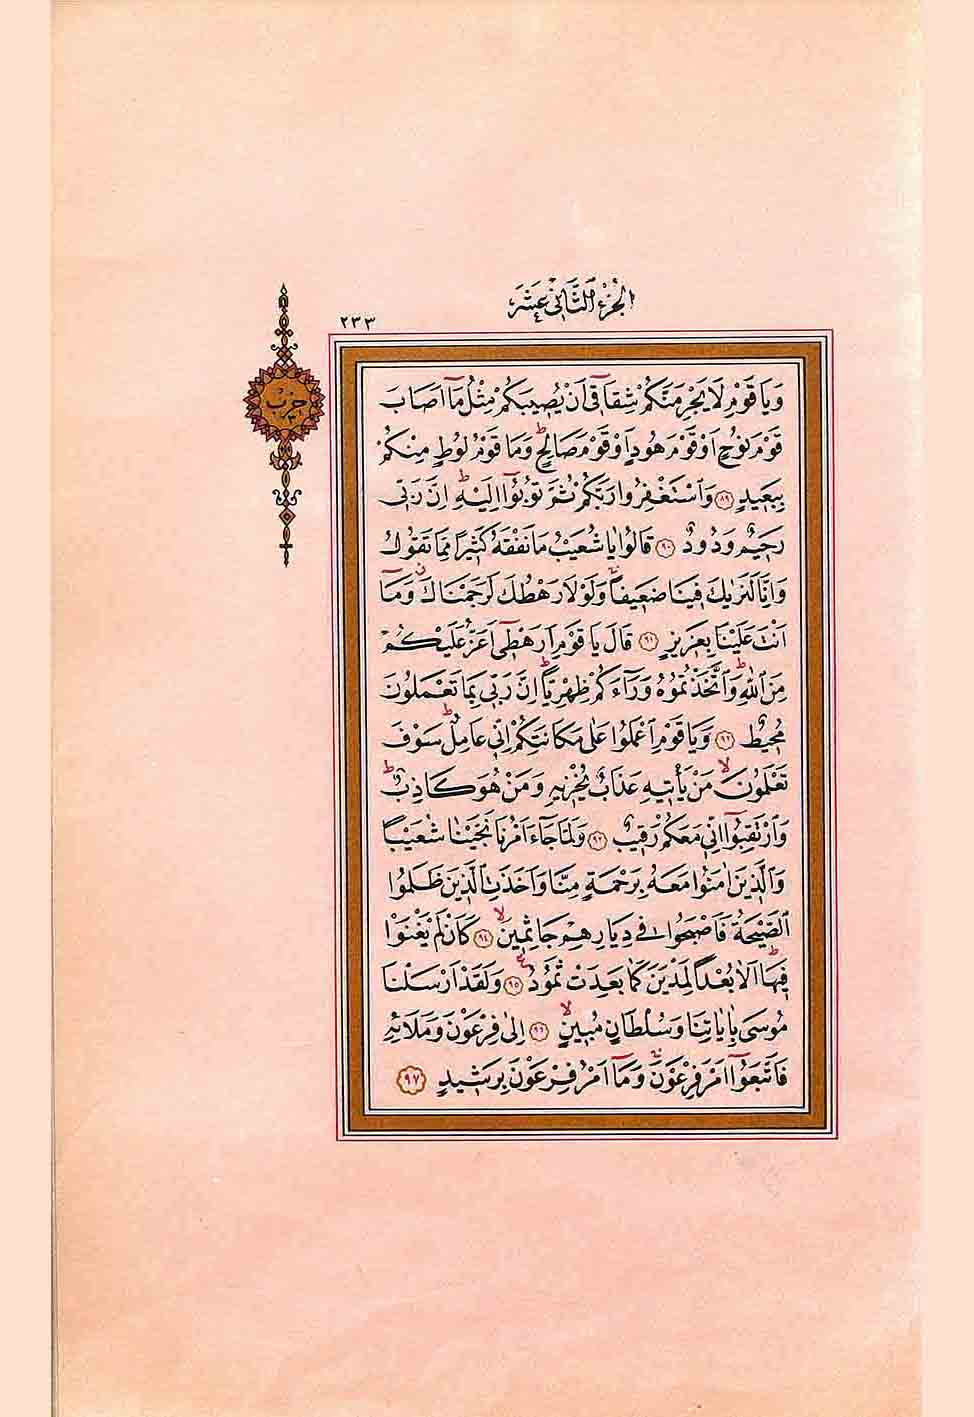 الجزء الثاني عشر
٢٣٣
حزب
وَيَا قَوْمِ لَا يَجْرِمَنَّكُمْ شِقَاقٖٓي اَنْ يُصٖيبَكُمْ مِثْلُ مَٓا اَصَابَ
قَوْمَ نُوحٍ اَوْ قَوْمَ هُودٍ اَوْ قَوْمَ صَالِحٍۜ وَمَا قَوْمُ لُوطٍ مِنْكُمْ
بِبَعٖيدٍ ﴿٨٩﴾ وَاسْتَغْفِرُوا رَبَّكُمْ ثُمَّ تُوبُٓوا اِلَيْهِۜ اِنَّ رَبّٖي
رَحٖيمٌ وَدُودٌ ﴿٩٠﴾ قَالُوا يَا شُعَيْبُ مَا نَفْقَهُ كَثٖيرًا مِمَّا تَقُولُ
وَاِنَّا لَنَرٰيكَ فٖينَا ضَعٖيفًاۚ وَلَوْلَا رَهْطُكَ لَرَجَمْنَاكَۘ وَمَٓا
اَنْتَ عَلَيْنَا بِعَزٖيزٍ ﴿٩١﴾ قَالَ يَا قَوْمِ اَرَهْطٖٓي اَعَزُّ عَلَيْكُمْ
مِنَ اللّٰهِۜ وَاتَّخَذْتُمُوهُ وَرَٓاءَكُمْ ظِهْرِيًّاۜ اِنَّ رَبّٖي بِمَا تَعْمَلُونَ
مُحٖيطٌ ﴿٩٢﴾ وَيَا قَوْمِ اعْمَلُوا عَلٰى مَكَانَتِكُمْ اِنّٖي عَامِلٌۜ سَوْفَ
تَعْلَمُونَۙ مَنْ يَأْتٖيهِ عَذَابٌ يُخْزٖيهِ وَمَنْ هُوَ كَاذِبٌۜ
وَارْتَقِبُٓوا اِنّٖي مَعَكُمْ رَقٖيبٌ ﴿٩٣﴾ وَلَمَّا جَٓاءَ اَمْرُنَا نَجَّيْنَا شُعَيْبًا
وَالَّذٖينَ اٰمَنُوا مَعَهُ بِرَحْمَةٍ مِنَّا وَاَخَذَتِ الَّذٖينَ ظَلَمُوا
الصَّيْحَةُ فَاَصْبَحُوا فٖي دِيَارِهِمْ جَاثِمٖينَۙ ﴿٩٤﴾ كَاَنْ لَمْ يَغْنَوْا
فٖيهَاۜ اَلَا بُعْدًا لِمَدْيَنَ كَمَا بَعِدَتْ ثَمُودُ ﴿٩٥﴾ وَلَقَدْ اَرْسَلْنَا
مُوسٰى بِاٰيَاتِنَا وَسُلْطَانٍ مُبٖينٍۙ ﴿٩٦﴾ اِلٰى فِرْعَوْنَ وَمَلَائِهٖ
فَاتَّبَعُٓوا اَمْرَ فِرْعَوْنَۚ وَمَٓا اَمْرُ فِرْعَوْنَ بِرَشٖيدٍ ﴿٩٧﴾